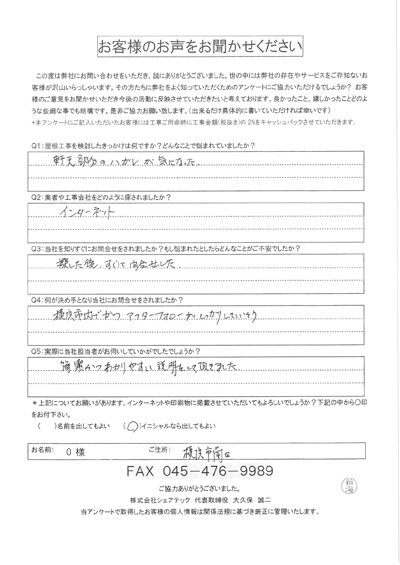 お客様のお声をお聞かせください
この度は弊社にお問い合わせをいただき、誠にありがとうございました。世の中には弊社の存在やサービスをご存知ないお
客様が沢山いらっしゃいます。その方たちに弊社をよく知っていただくためのアンケートにご協力いただけるでしょうか? お客
様のご意見をお聞かせいただき今後の活動に反映させていただきたいと考えております。良かったこと、嬉しかったことどのよ
うな些細な事でも結構です。是非ご協力お願い致します。(出来るだけ具体的に書いていただければ幸いです)
*本アンケートにご記入いただいたお客様には工事ご用命時に工事金額(税抜き)の2%をキャッシュバックさせていただきます。
Q1:屋根工事を検討したきっかけは何ですか?どんなことで悩まれていましたか?
軒天部分のハガレが気になった。
Q2:業者や工事会社をどのように探されましたか?
インターネット
Q3:当社を知りすぐにお問合せをされましたか?もし悩まれたとしたらどんなことがご不安でしたか?
探した後、すぐに問合せした。
Q4:何が決め手となり当社にお問合せをされましたか?
横浜市内でかつ、アフターフォローがしっかりしていそう
Q5:実際に当社担当者がお伺いしていかがでしたでしょうか?
簡潔かつわかりやすい説明をして頂きました
*上記についてお願いがあります。インターネットや印刷物に掲載させていただいてもよろしいでしょうか?下記の中から〇印
をお付下さい。
( )名前を出してもよい (〇)イニシャルなら出してもよい
お名前: O 様 ご住所: 横浜市南区
FAX 045-476-9989
ご協力ありがとうございました。
株式会社シェアテック 代表取締役 大久保 誠二
当アンケートで取得したお客様の個人情報は関係法規に基づき厳正に管理いたします。